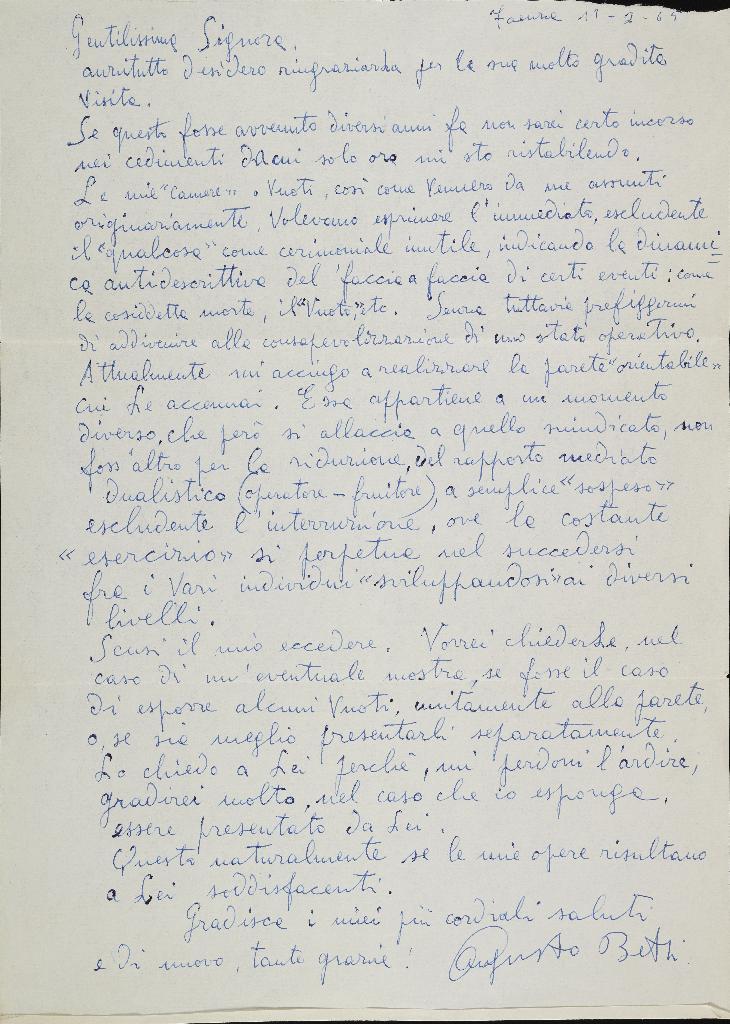 Faenza 11-2-65
Gentilissima Signora,
anzitutto desidero ringraziarLa per la sua molto gradita
visita.
Se questa fosse avvenuta diversi anni fa non sarei certo incorso
nei cedimenti da cui solo ora mi sto ristabilendo.
Le mie "camere" o Vuoti, così come vennero da me assunti
originariamente, volevano esprimere l'immediato, escludente
il "qualcosa" come cerimoniale inutile, indicando la dinami=
ca antidescrittiva del faccia a faccia di certi eventi: come
la cosiddetta morte, il "Vuoto", etc. Senza tuttavia prefiggermi
di addivenire alla consapevolizzazione di uno stato operativo.
Attualmente mi accingo a realizzare la parete "orientabile"
cui Le accennai. Essa appartiene a un momento
diverso, che però si allaccia a quello suindicato, non
foss'altro per la riduzione, del rapporto mediato
dualistico (operatore - fruitore), a semplice "sospeso"
escludente l'interruzione, ove la costante
"esercizio" si perpetua nel succedersi
fra i vari individui "sviluppandosi" ai diversi
livelli.
Scusi il mio eccedere. Vorrei chiederLe, nel
caso di un'eventuale mostra, se fosse il caso
di esporre alcuni Vuoti, unitamente alla parete,
o, se sia meglio presentarli separatamente.
Lo chiedo a Lei perchè, mi perdoni l'ardire,
gradirei molto, nel caso che io esponga,
essere presentato da Lei.
Questo naturalmente se le mie opere risultano
a Lei soddisfacenti.
Gradisca i miei più cordiali saluti
e di nuovo, tante grazie! Augusto Betti